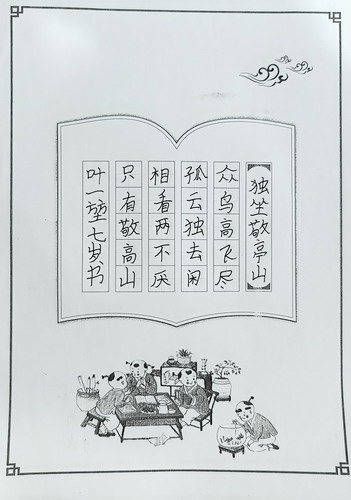 独坐敬亭山
众鸟高飞尽
孤云独去闲
相看两不厌
只有敬高山
叶一堃七岁书